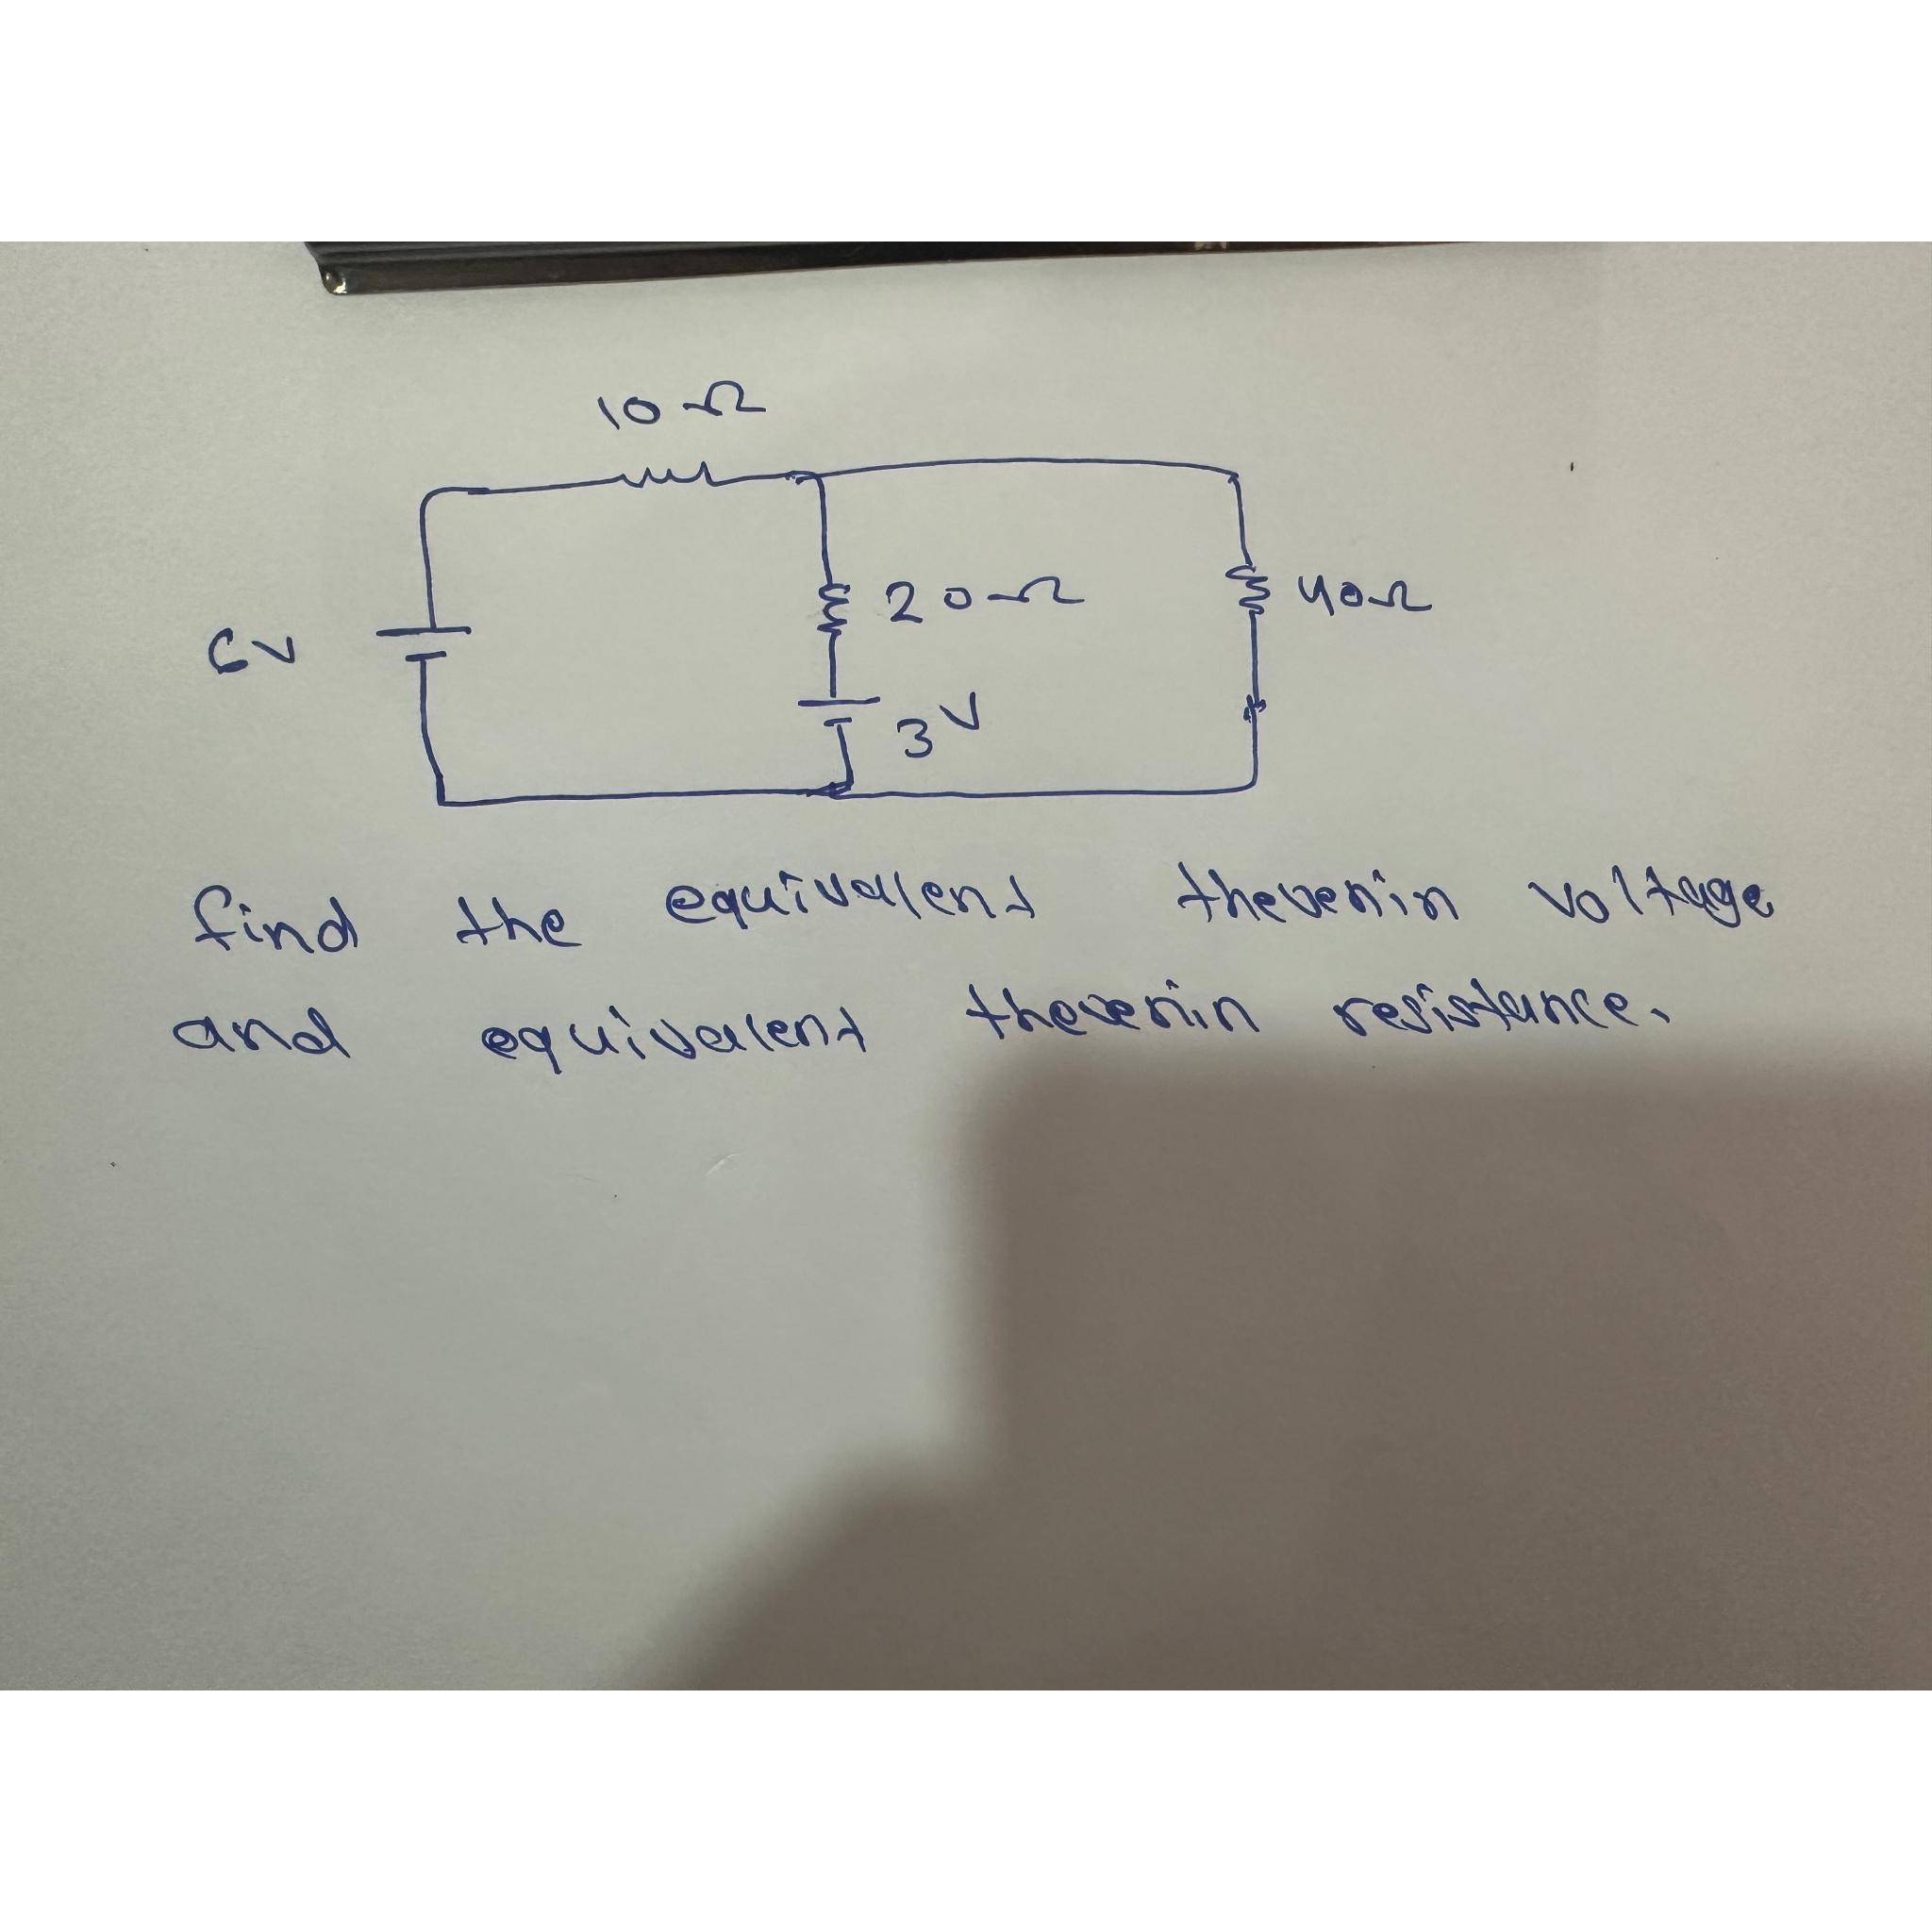 10Ω
6V
20Ω
40Ω
3V
find the equivalent thevenin voltage
and equivalent thevenin resistance.